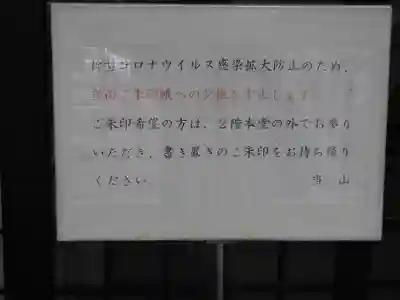 新型コロナウイルス感染拡大防止のため、
当面ご朱印帳への
ご朱印希望の方は、2階本堂の外でお参り
いただき、書き置きのご朱印をお持ち帰り
ください 当山